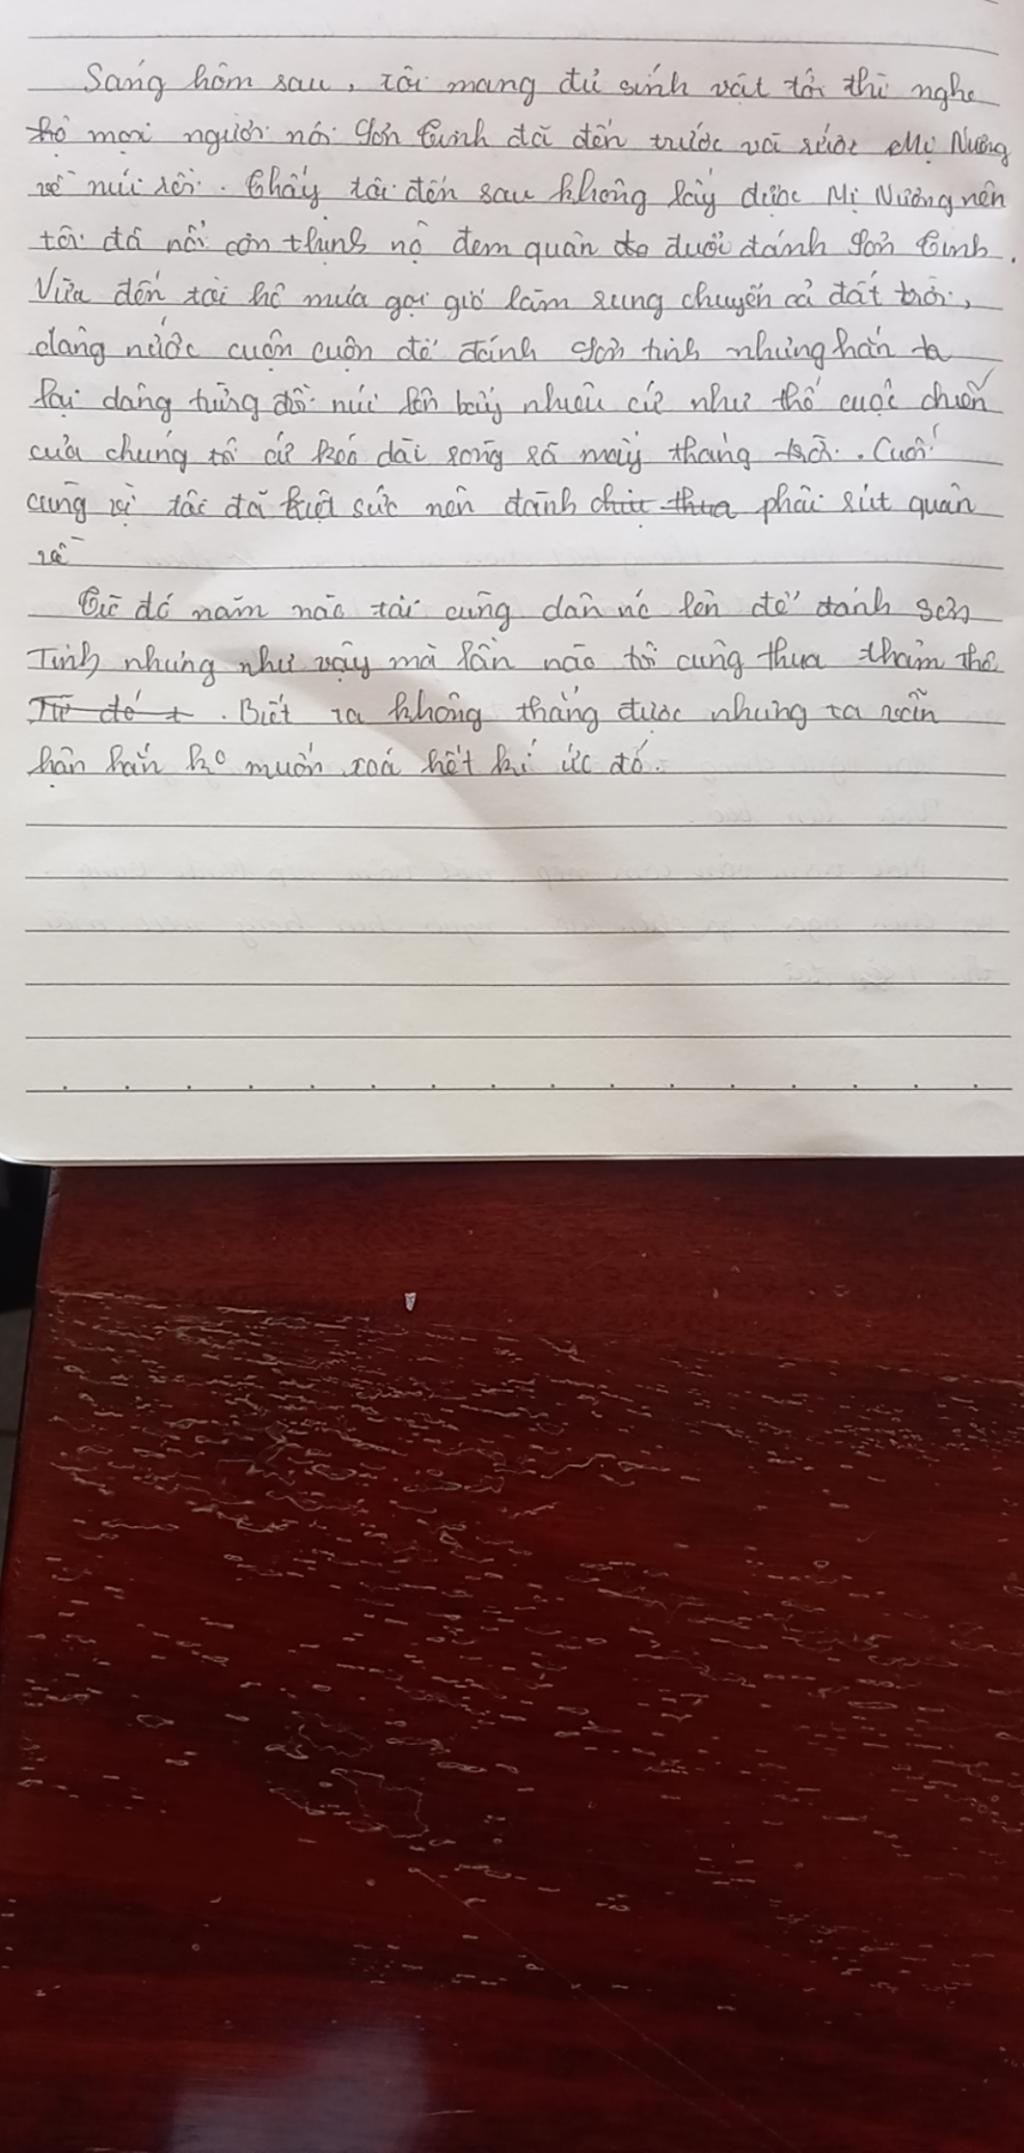 Sáng hôm sau, tôi mang đủ sính vật tới thì nghe
mọi người nói Sơn Tinh đã đến trước và rước Mị Nương
về núi rồi. Thấy tôi đến sau không lấy được Mị Nương nên
tôi đã nổi cơn thịnh nộ đem quân đuổi đánh Sơn Tinh.
Vừa đến tôi hô mưa gọi gió làm rung chuyển cả đất trời,
dâng nước cuồn cuộn để đánh Sơn tinh nhưng hắn ta
lại dâng từng đồi núi lên bấy nhiêu cứ như thế cuộc chiến
của chúng tôi cứ kéo dài ròng rã mấy tháng trời. Cuối
cùng vì tôi đã kiệt sức nên đành phải rút quân
về
Từ đó năm nào tôi cũng dân nc lên để đánh Sơn
Tinh nhưng như vậy mà lần nào tôi cũng thua thảm thê
. Biết ra không thắng được nhưng ta vẫn
hận hắn ko muốn xoá hết kí ức đó.